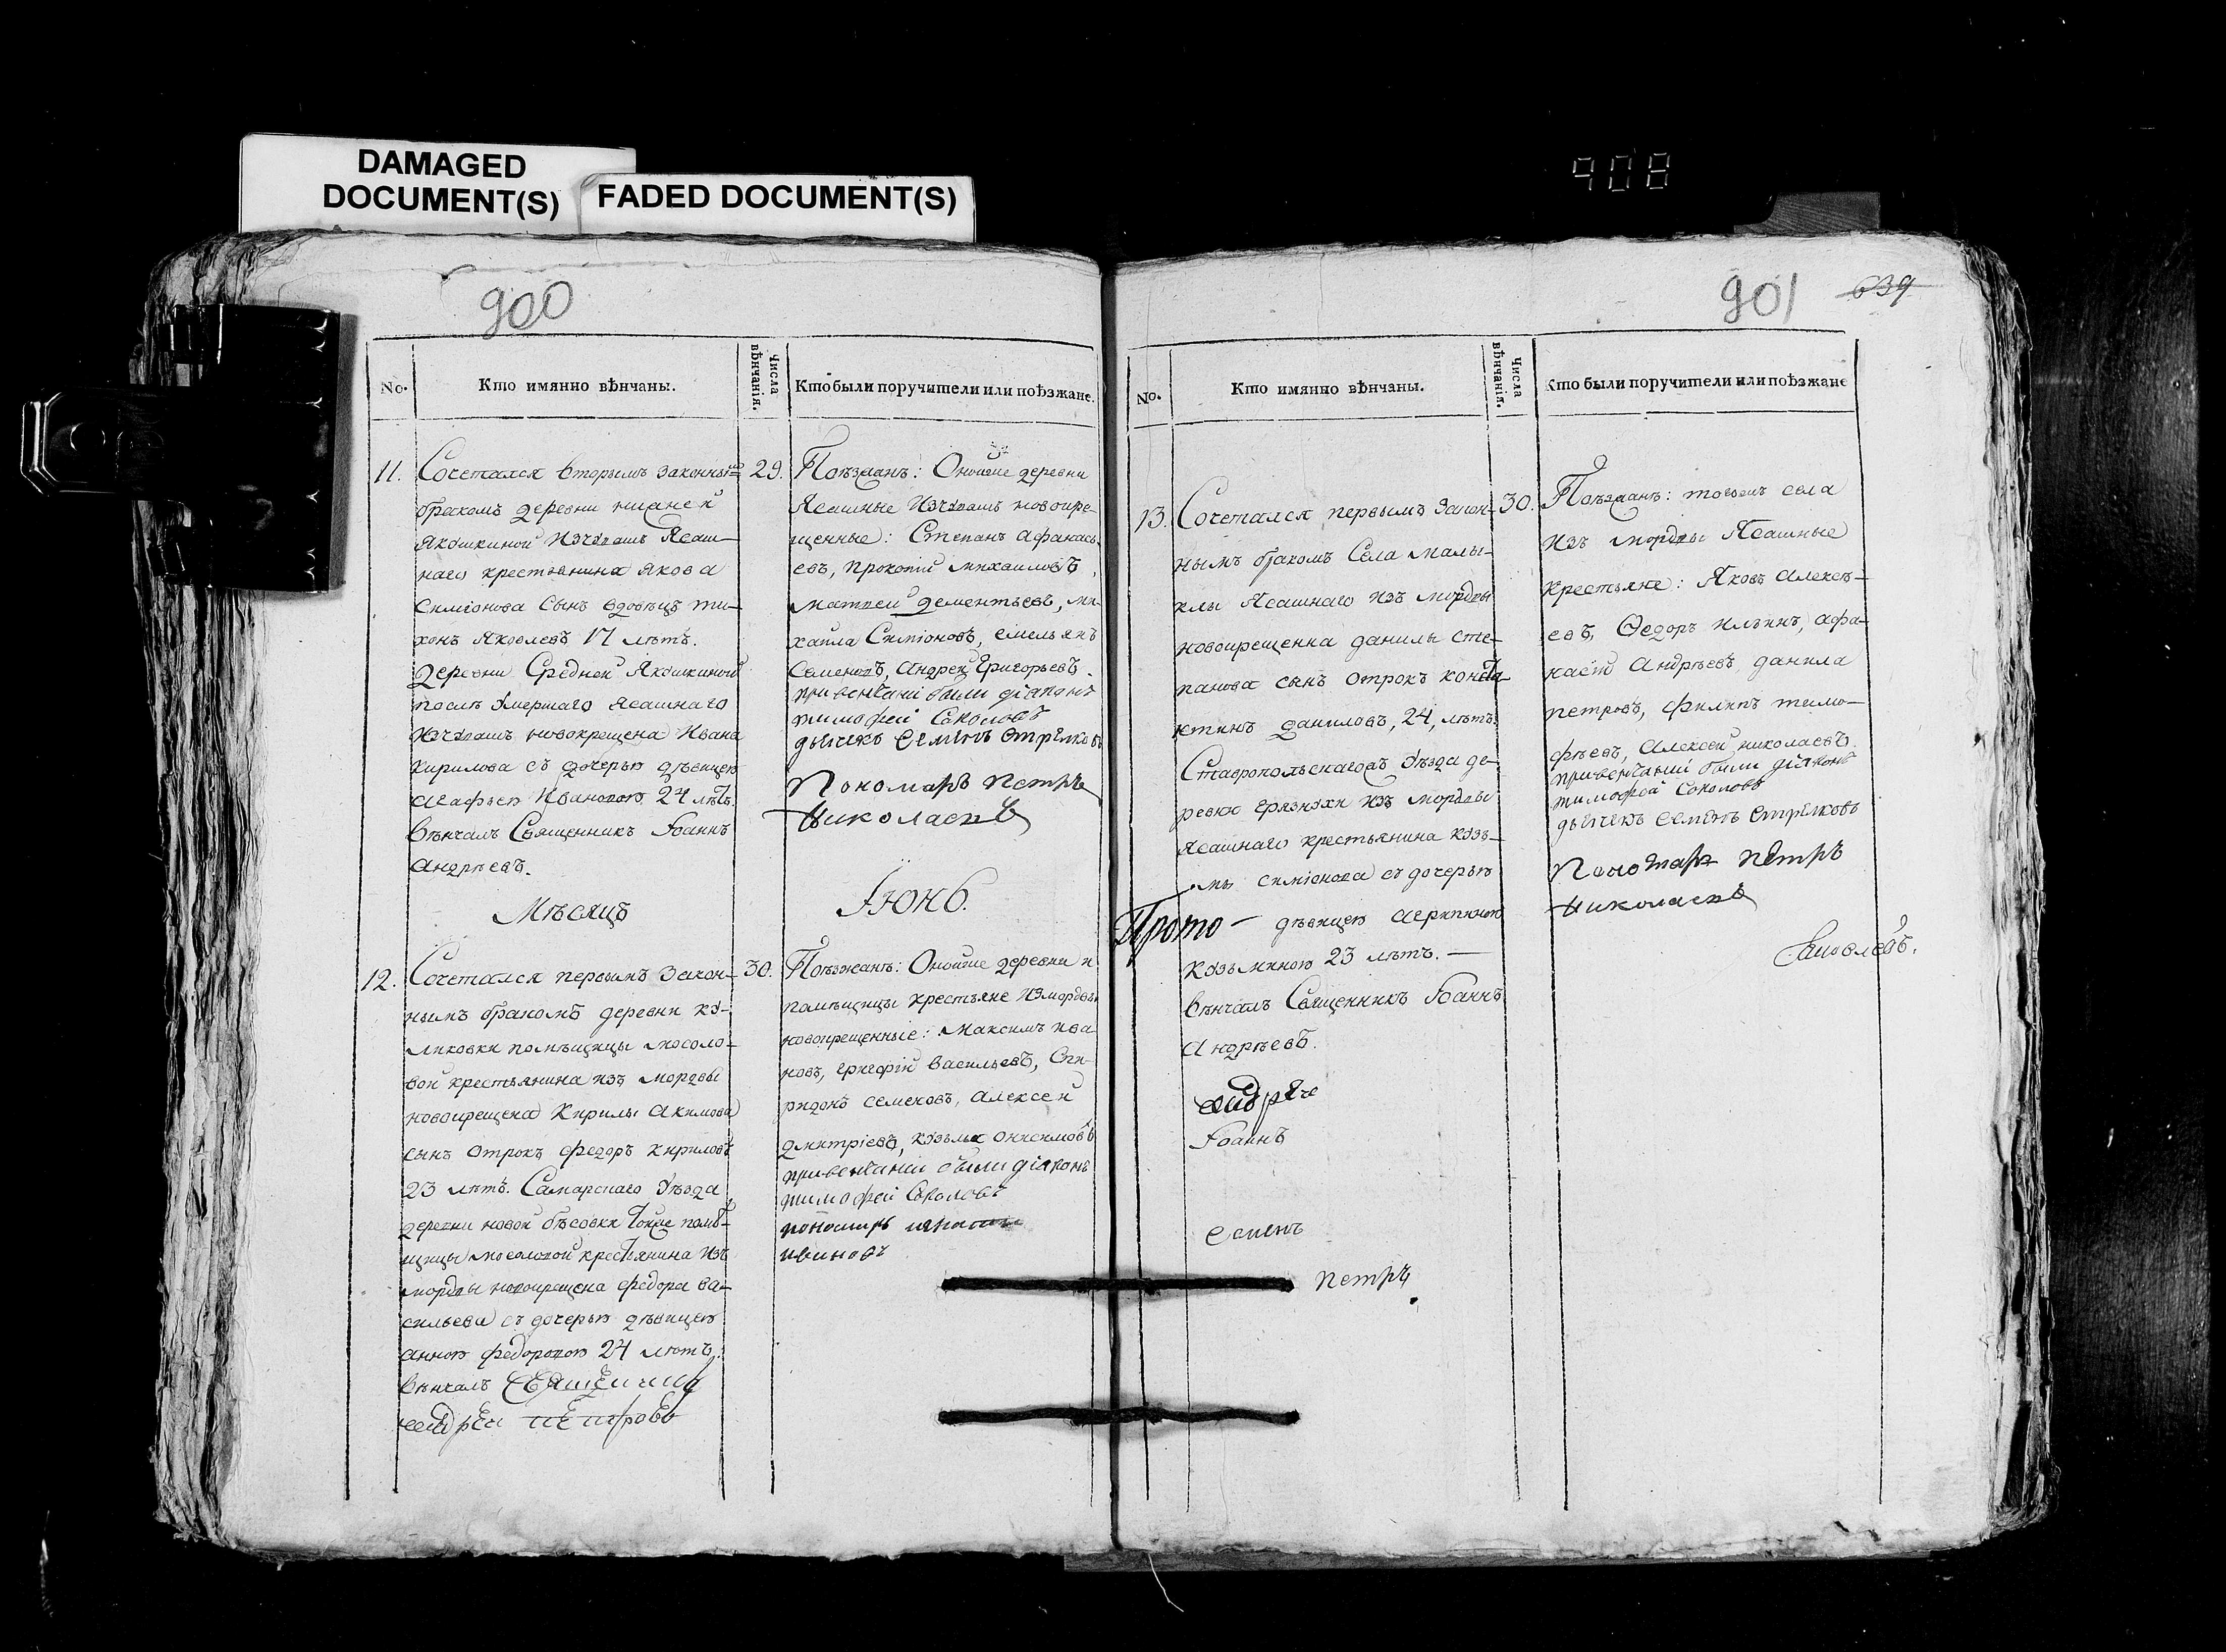 DAMAGED
DOCUMENT(S)
FADED DOCUMENT(S)
908
900
No.
Кто имянно вѣнчаны.
Числа
вѣнчанія.
Кто были поручители или поѣзжане.
11.
Сочетался вторымъ законны
бракомъ деревни нижней
Якушкиной изчувашъ Ясаш-
наго крестьянина Якова
Симіонова сынъ вдовецъ ти-
хонъ Яковлевъ 17 лѣтъ.
деревни Средней Якушкиной
послѣ умершаго Ясашнаго
изчувашъ новокрещена Ивана
Кирилова съ дочерью дѣвицею
Агафьею Ивановою 24 лѣтъ.
вѣнчалъ Священникъ Іоаннъ
Андрѣевъ.
29.
Поѣзжанъ: Оной же деревни
Ясашные изчувашъ новокре-
щенные: Степанъ Афанась
евъ, прокопій михаиловъ,
матвей дементьевъ, ми-
хаила Симіоновъ, емельянъ
Семеновъ, Андрей Григорьевъ.
при венчаніи были діаконъ
тимофей Соколовъ
дьячекъ Семенъ Стрелковъ
Пономарь Петръ
Николаевъ
Мѣсяцъ
Іюнь.
12.
Сочетался первымъ закон-
нымъ бракомъ деревни ку-
ликовки помѣщицы мосоло-
вой крестьянина изъ мордвы
новокрещена Кирилы Акимова
сынъ отрокъ федоръ Кириловъ
23 лѣтъ. Самарскаго уѣзда
деревни новой бѣсовки тойже помѣ-
щицы мосоловой крестьянина изъ
мордвы новокрещена федора ва-
сильева съ дочерью дѣвицею
анною федоровою 24 лѣтъ.
вѣнчалъ Священник
андреи петровъ
30.
Поѣзжанъ: Оной же деревни и
помѣщицы крестьяне измордвы
новокрещенные: Максимъ ива
новъ, григорій васильевъ, Спи-
ридонъ семеновъ, Алексей
дмитріевъ, козьма онисимовъ
при венчаніи были діаконъ
тимофеи Соколовъ
пономарь
ивановъ
901
639
No.
Кто имянно вѣнчаны.
Числа
вѣнчанія.
Кто были поручители или поѣзжане
13.
Сочетался первымъ закон-
нымъ бракомъ Села малы-
клы Ясашнаго изъ мордвы
новокрещенна данилы сте-
панова сынъ отрокъ конста-
нтинъ даниловъ, 24, лѣтъ.
Ставропольскагоаъ уѣзда де-
ревни грязнухи изъ мордвы
Ясашнаго крестьянина козь-
мы симіонова съ дочерью
дѣвицею Агрипиною
Козьминою 23 лѣтъ.
вѣнчалъ Священникъ Іоаннъ
Андрѣевъ.
Прото-
андрѣе
Іоаннъ
Семенъ
Петръ
30.
Поѣзжанъ: тогожъ села
изъ мордвы Ясашные
крестьяне: Яковъ алексѣ-
евъ, Ѳедоръ ильинъ, афа-
насій Андрѣевъ, данила
петровъ, филипъ тимо-
фѣевъ, Алексей николаевъ
при венчаніи были діаконъ
тимофей Соколовъ
дьячекъ Семенъ Стрелковъ
Пономарь Петръ
Николаевъ